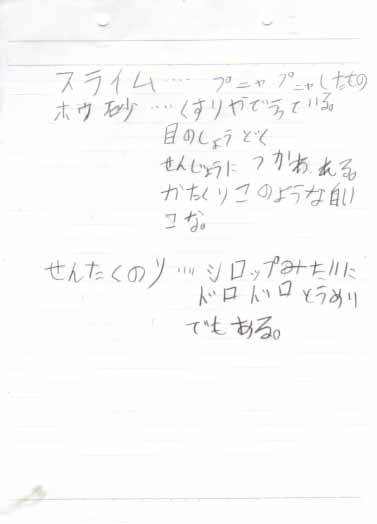 スライム…プニャプニャしたもの
ホウ砂…くすりやでうっている。
目のしょうどく
せんじょうにつかわれる。
かたくりこのような白い
こな。
せんたくのり…シロップみたいに
ドロドロとうめい
でもある。